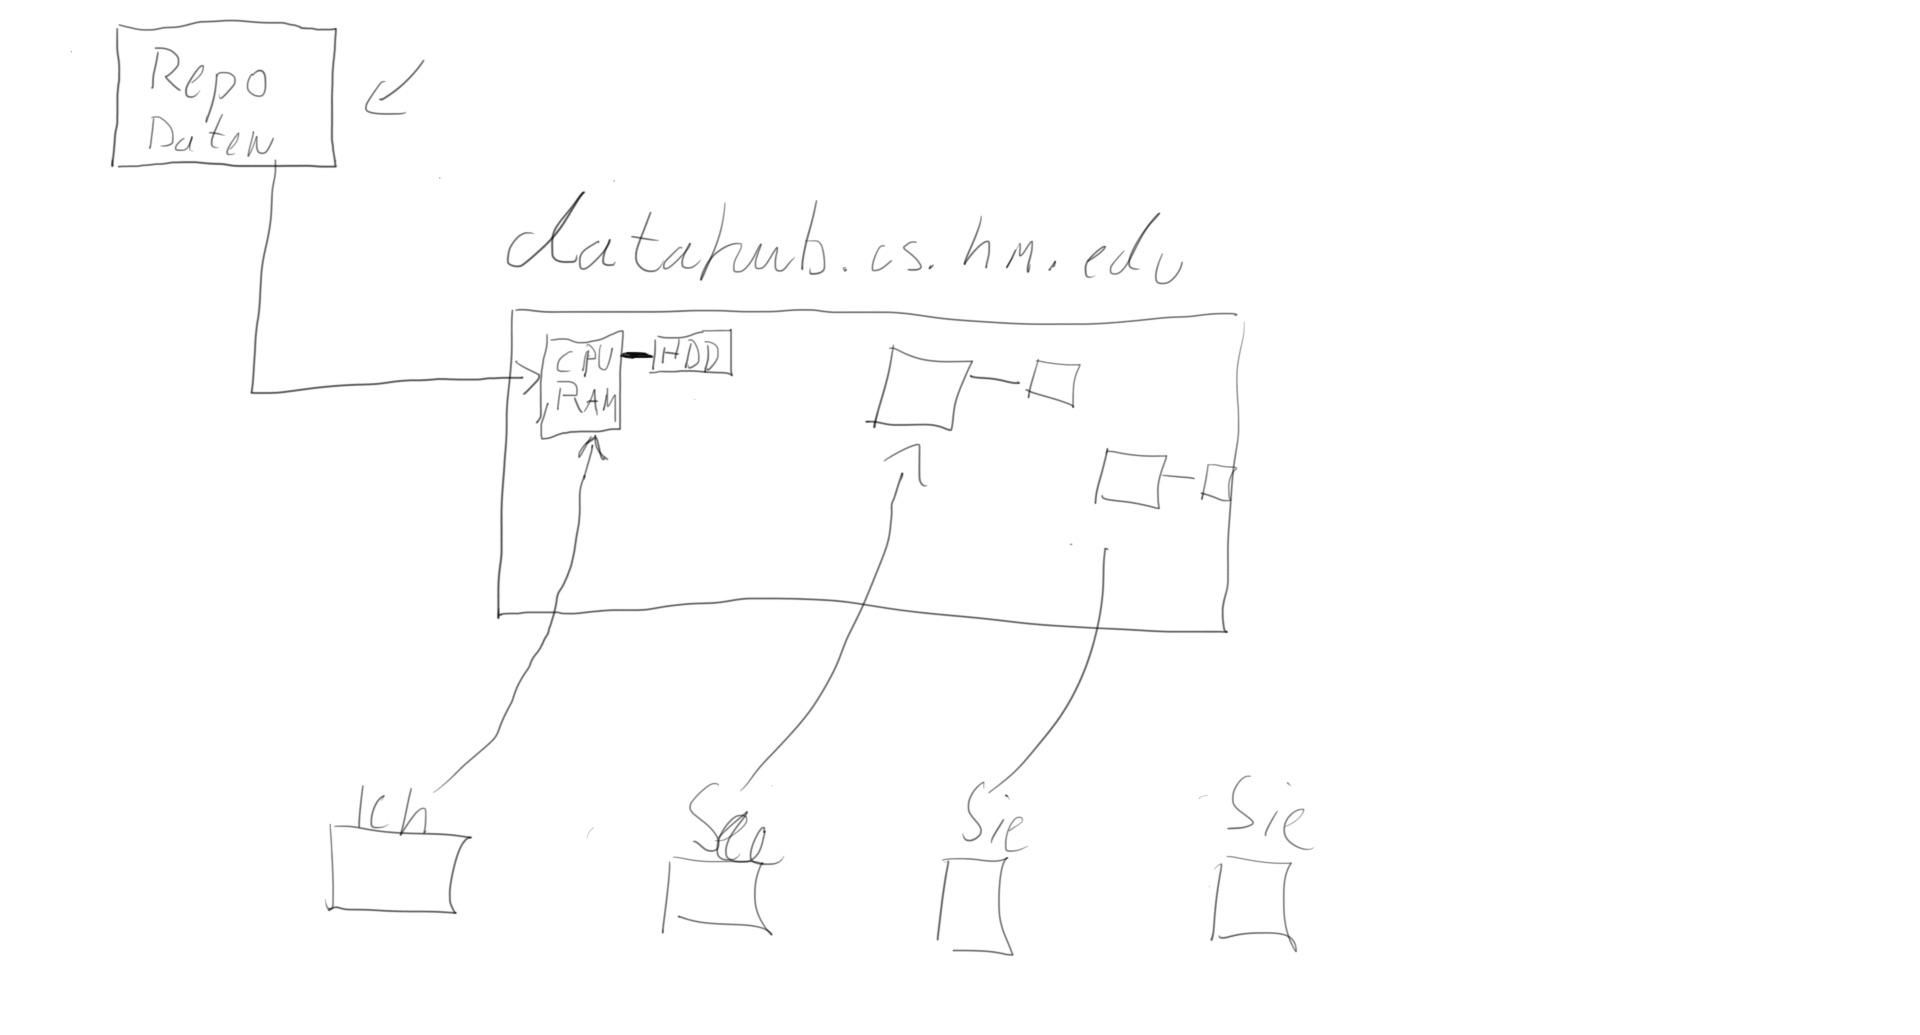 Repo
Daten
datahub.cs.hm.edu
CPU
RAM
HDD
Ich
Sie
Sie
Sie